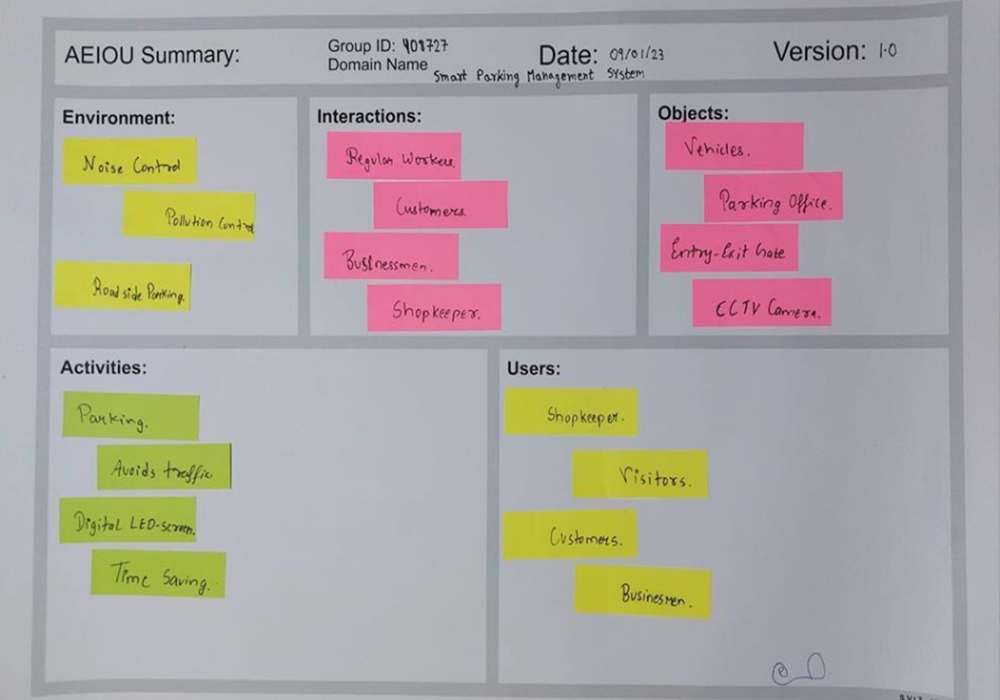 AEIOU Summary:
Group ID: 408727
Date: 09/01/23
Version: 1.0
Domain Name Smart Parking Management System
Environment:
Noise Control
Pollution Control
Road side Parking.
Interactions:
Regular Workers.
Customers.
Businessmen.
Shopkeeper.
Objects:
Vehicles.
Parking Office.
Entry-Exit Gate
CCTV Camera.
Activities:
Parking.
Avoids traffic
Digital LED-screen.
Time Saving.
Users:
Shopkeeper.
Visitors.
Customers.
Businesmen.